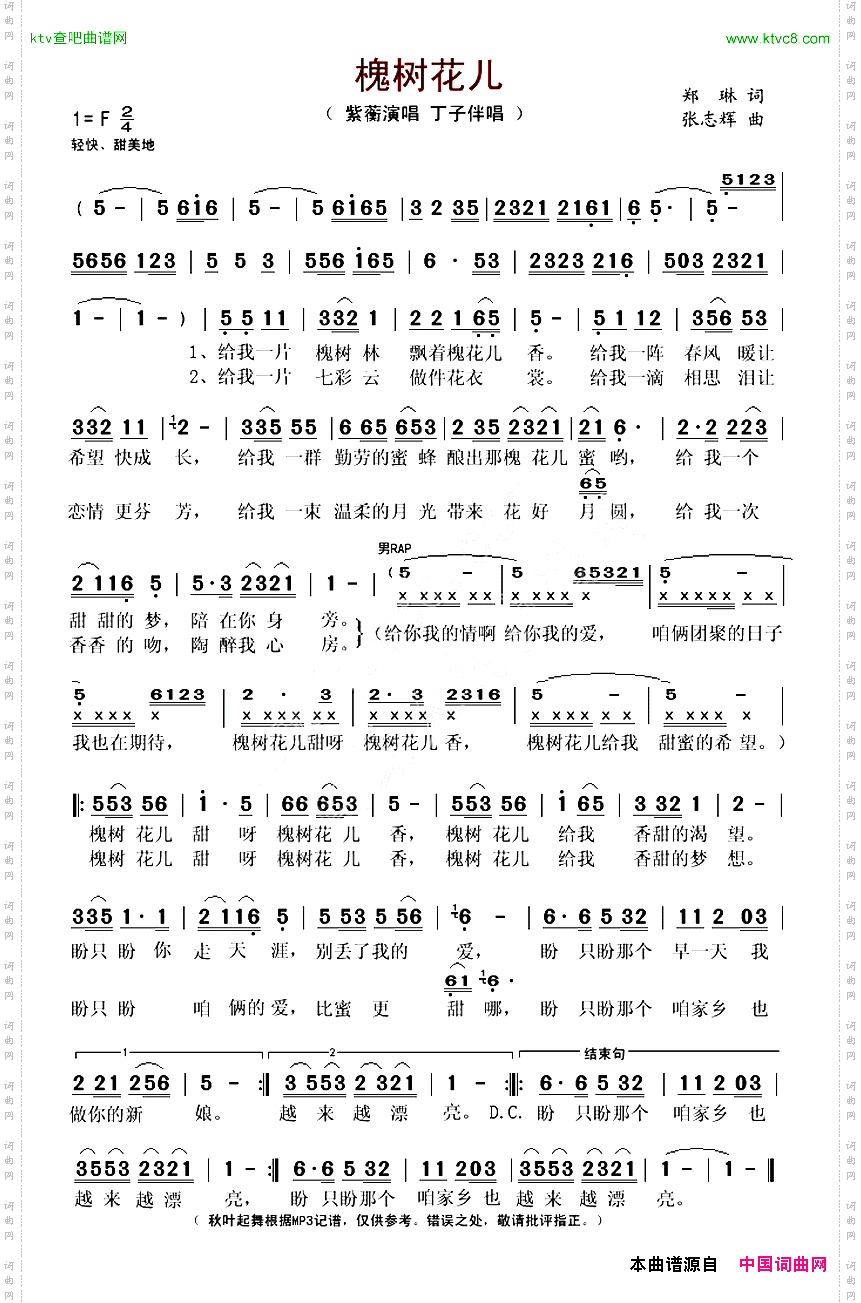 ktv查吧曲谱网
www.ktvc8.com
槐树花儿
（ 紫蘅演唱 丁子伴唱 ）
郑 琳 词
张志辉 曲
1=F 2/4
轻快、甜美地
5123
( 5 - | 5 6i6 | 5 - | 5 6i65 | 3 2 35 | 2321 2161 | 6 5· | 5 -
5656 123 | 5 5 3 | 556 i65 | 6 · 53 | 2323 216 | 503 2321
1 - | 1 - ) | 5 5 11 | 332 1 | 2 2 1 65 | 5 - | 5 1 12 | 356 53
1、给我一片 槐树 林 飘着槐花儿 香。 给我一阵 春风 暖让
2、给我一片 七彩 云 做件花衣 裳。 给我一滴 相思 泪让
332 11 | 2 - | 335 55 | 6 65 653 | 2 35 2321 | 21 6 · | 2·2 223
希望 快成 长， 给我 一群 勤劳的蜜 蜂 酿出那槐 花儿 蜜 哟， 给 我一个
65
恋情 更芬 芳， 给我 一束 温柔的月 光 带来 花 好 月 圆， 给 我一次
男RAP
2 116 5 | 5·3 2321 | 1 - | ( 5 - | 5 65321 | 5 -
x xxx x xxx | x xxx x | x xxx x xxx
甜 甜的 梦， 陪 在你 身 旁。
香香 的 吻， 陶 醉我 心 房。
（给你我的情啊 给你我的爱， 咱俩团聚的日子
5 6123 | 2 · 3 | 2· 3 2316 | 5 - | 5 - )
x xxx x | x xxx x xxx | x xxx x | x xxx x xxx | x xxx x
我也在期待， 槐树花儿甜呀 槐树花儿 香， 槐树花儿给我 甜蜜的希望。）
‖: 553 56 | i · 5 | 66 653 | 5 - | 553 56 | i 65 | 3 332 1 | 2 -
槐树 花儿 甜 呀 槐树花 儿 香， 槐树 花儿 给我 香甜的渴 望。
槐树 花儿 甜 呀 槐树花 儿 香， 槐树 花儿 给我 香甜的梦 想。
335 1·1 | 2 116 5 | 5 53 5 56 | 6 - | 6·6 5 32 | 11 2 03
盼只 盼 你 走 天 涯， 别丢了我的 爱， 盼 只盼那个 早一天 我
61 6·
盼只 盼 咱 俩的 爱， 比蜜 更 甜 哪， 盼 只盼那个 咱家乡 也
1 2 结束句
2 21 256 | 5 - :‖ 3 553 2 321 | 1 - :‖: 6·6 5 32 | 11 2 03
做你的新 娘。 越 来 越 漂 亮。 D.C. 盼 只盼那个 咱家乡 也
3553 2321 | 1 - :‖ 6·6 5 32 | 11 203 | 3553 2321 | 1 - | 1 - ‖
越 来 越漂 亮， 盼 只盼那个 咱家乡 也 越 来 越漂 亮。
（ 秋叶起舞根据MP3记谱，仅供参考。错误之处，敬请批评指正。）
本曲谱源自 中国词曲网